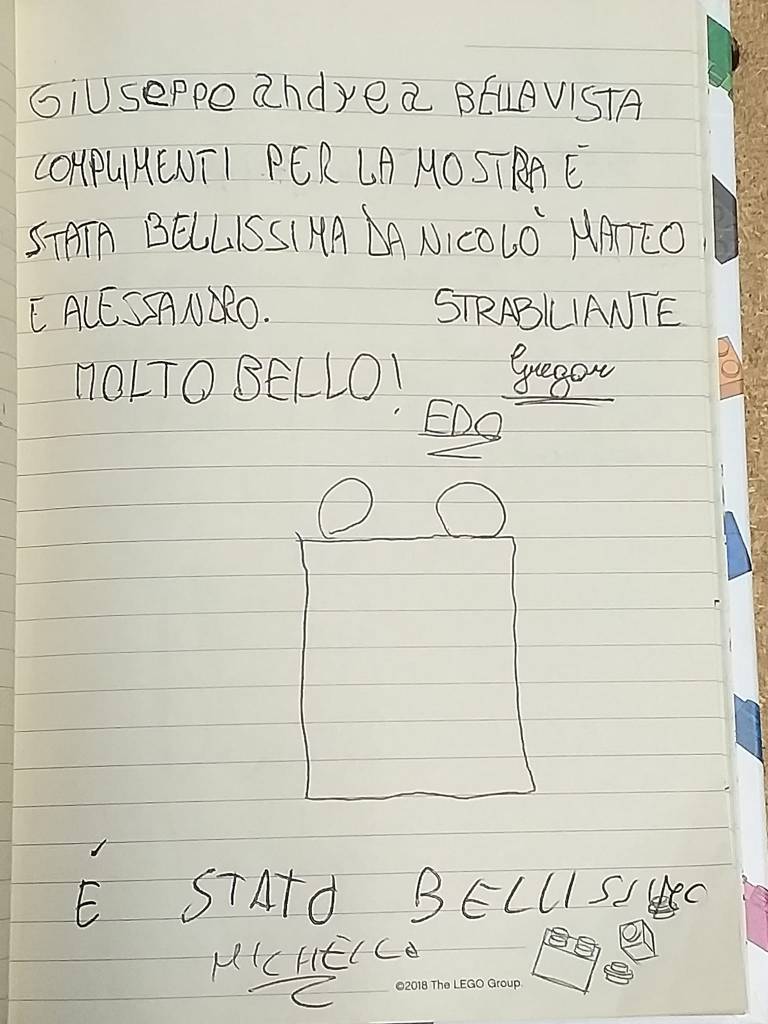 GiUSePPe andrea BELLAVISTA
COMPLIMENTI PER LA MOSTRA È
STATA BELLISSIMA DA NICOLÒ MATTEO
E ALESSANDRO. STRABILIANTE
MOLTO BELLO! Gregor
EDO
É STATO BELLISSIMO
MICHELLE
©2018 The LEGO Group.